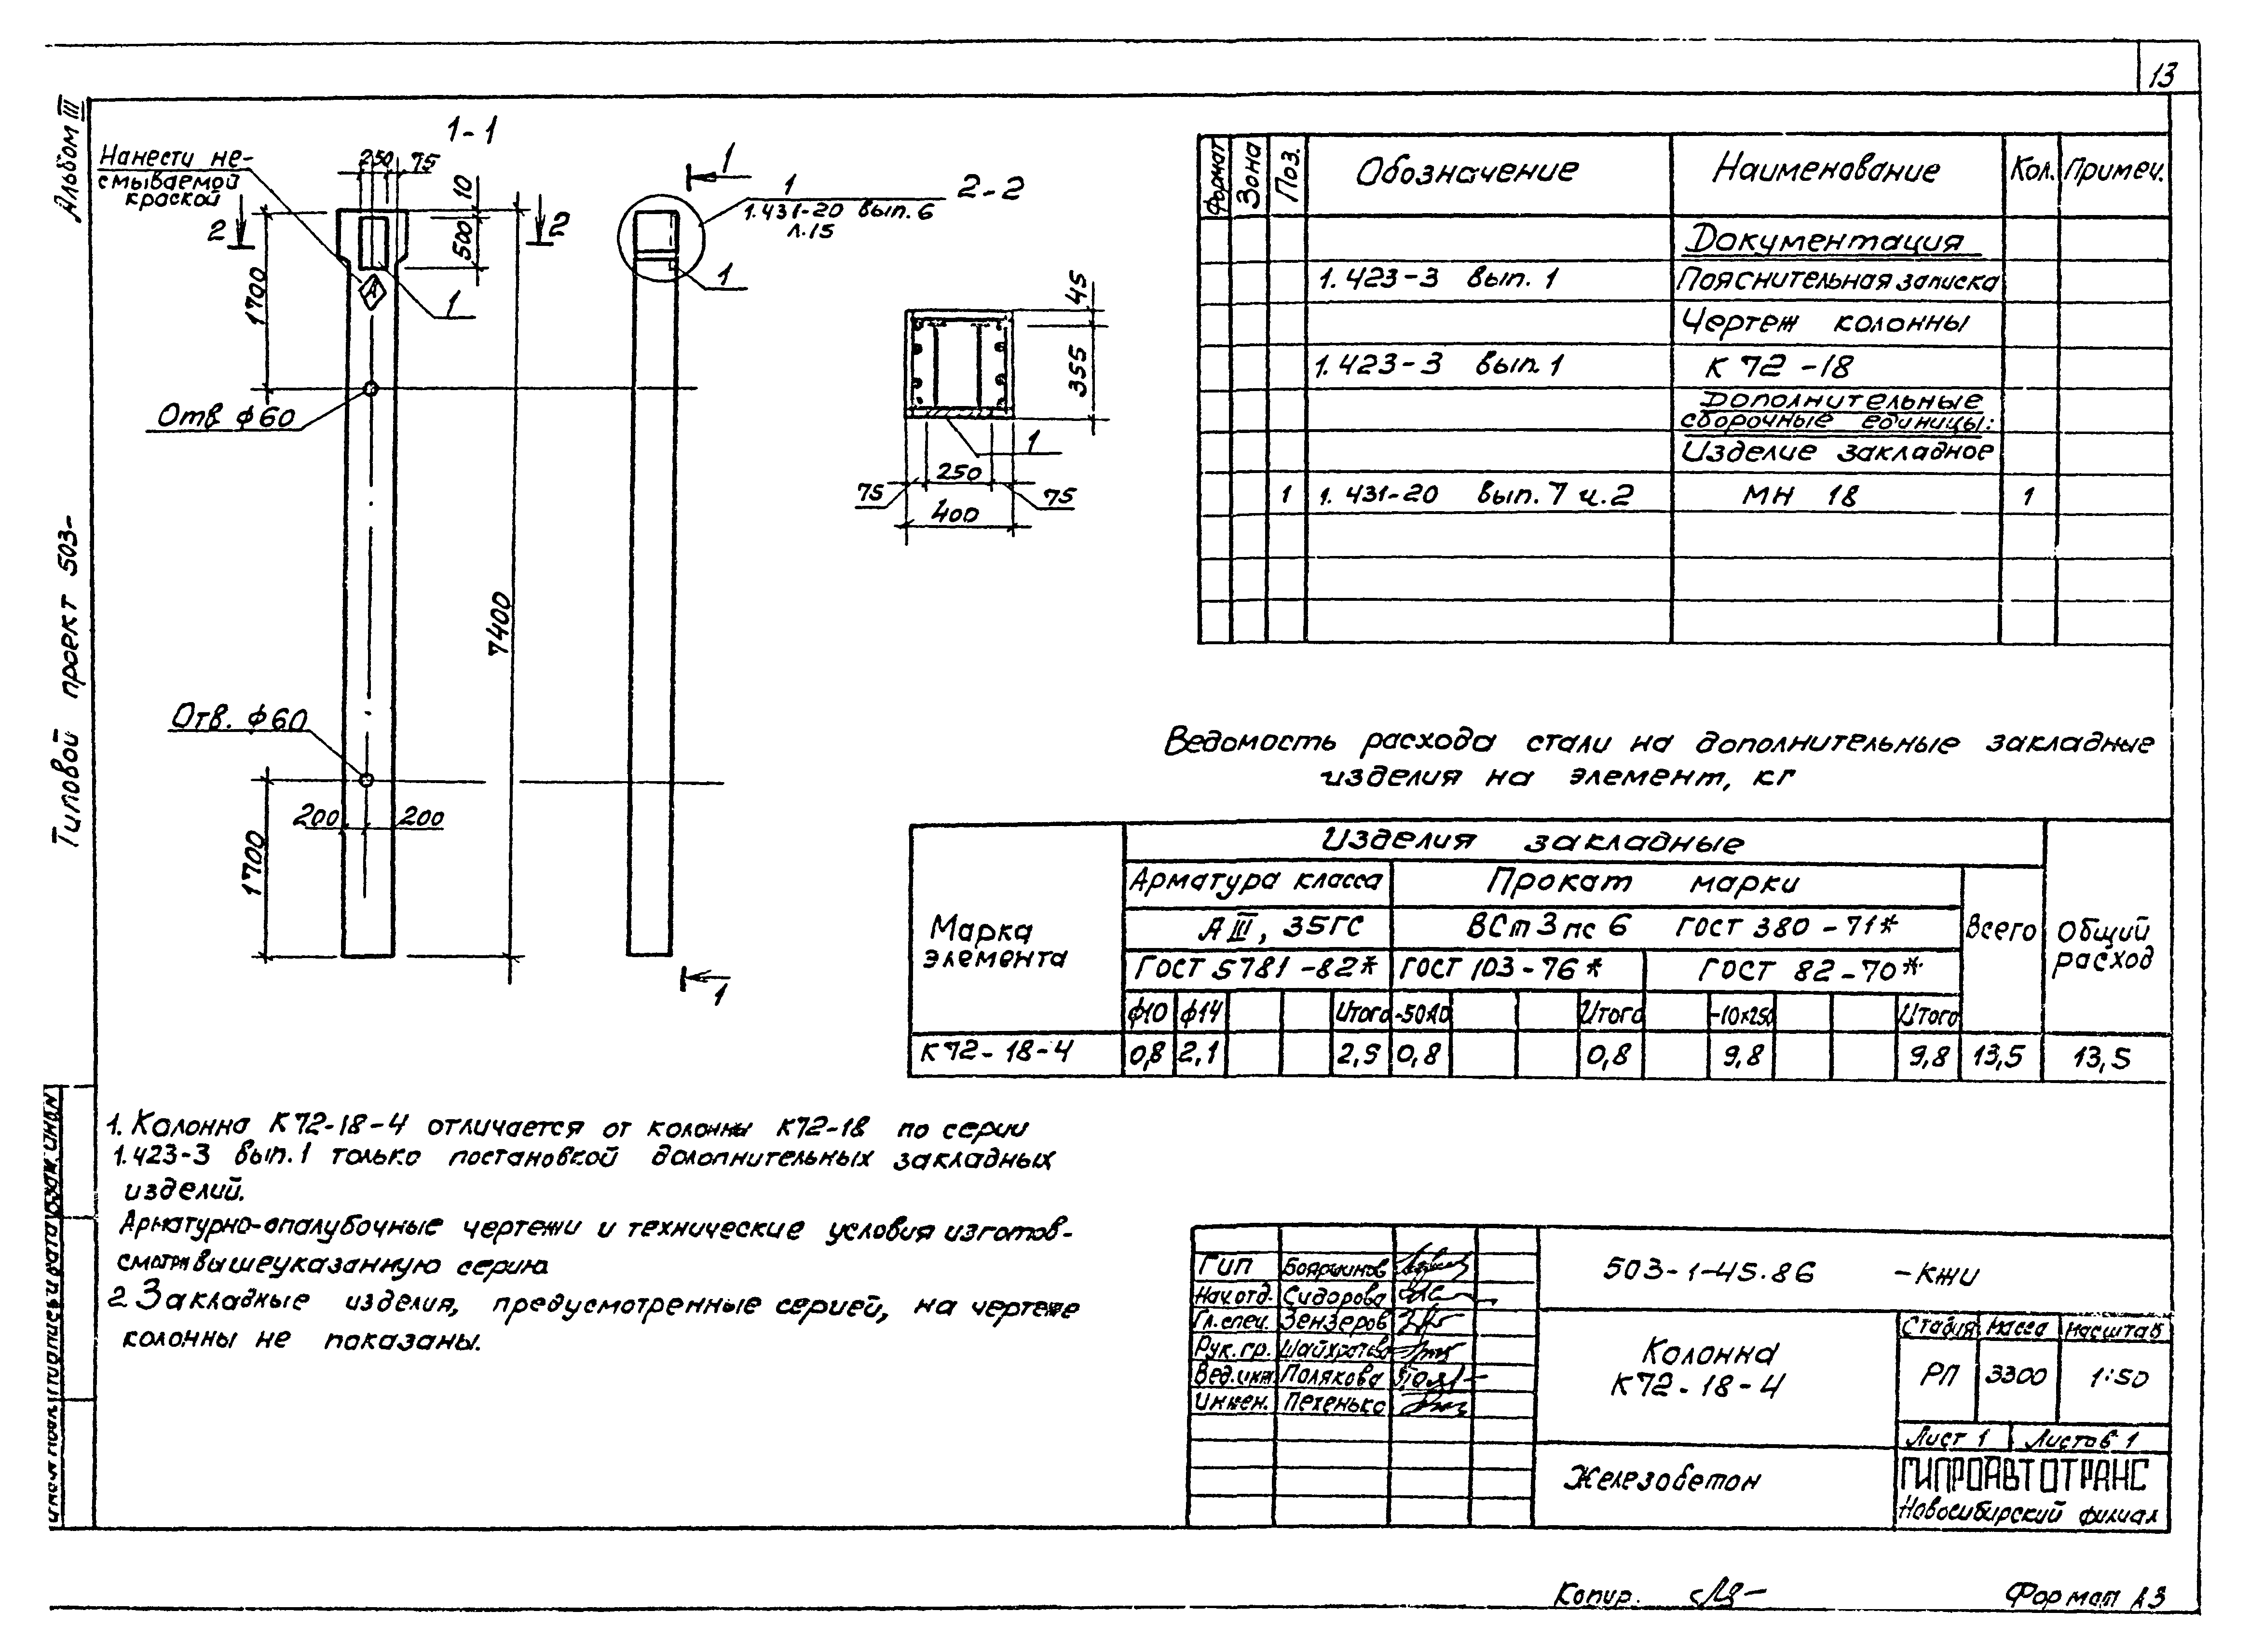 13
Альбом III
Типовой проект 503-
1-1
Нанести не-
смываемой
краской
250
75
10
500
2
2
1700
А
1
Отв ф60
7400
Отв. ф60
200
200
1700
1
1
1.431-20 вып.6
л.15
1
1
2-2
45
355
1
75
250
75
400
Формат Зона Поз. Обозначение Наименование Кол. Примеч.
Документация
1.423-3 вып.1 Пояснительная записка
Чертеж колонны
1.423-3 вып.1 К 72-18
Дополнительные
сборочные единицы:
Изделие закладное
1 1.431-20 вып.7 ч.2 МН 18 1
Ведомость расхода стали на дополнительные закладные
изделия на элемент, кг
Марка
элемента
Изделия закладные
Арматура класса Прокат марки
АIII, 35ГС ВСт3пс6 ГОСТ 380-71*
Всего
Общий
расход
ГОСТ 5781-82* ГОСТ 103-76* ГОСТ 82-70*
ф10 ф14 Итого -50х10 Итого -10х250 Итого
К72-18-4 0,8 2,1 2,9 0,8 0,8 9,8 9,8 13,5 13,5
1. Колонна К72-18-4 отличается от колонны К72-18 по серии
1.423-3 вып.1 только постановкой дополнительных закладных
изделий.
Арматурно-опалубочные чертежи и технические условия изготов-
смотри вышеуказанную серию
2 Закладные изделия, предусмотренные серией, на чертеже
колонны не показаны.
ГИП Бояршинов
Нач.отд. Сидорова
Гл.спец. Зензеров
Рук.гр.
Вед.инж. Полякова
Инжен. Петенько
503-1-45.86 -КЖИ
Колонна
К72-18-4
Стадия Масса Масштаб
РП 3300 1:50
Лист 1 Листов 1
Железобетон
ГИПРОАВТОТРАНС
Новосибирский филиал
Копир.
Формат А3